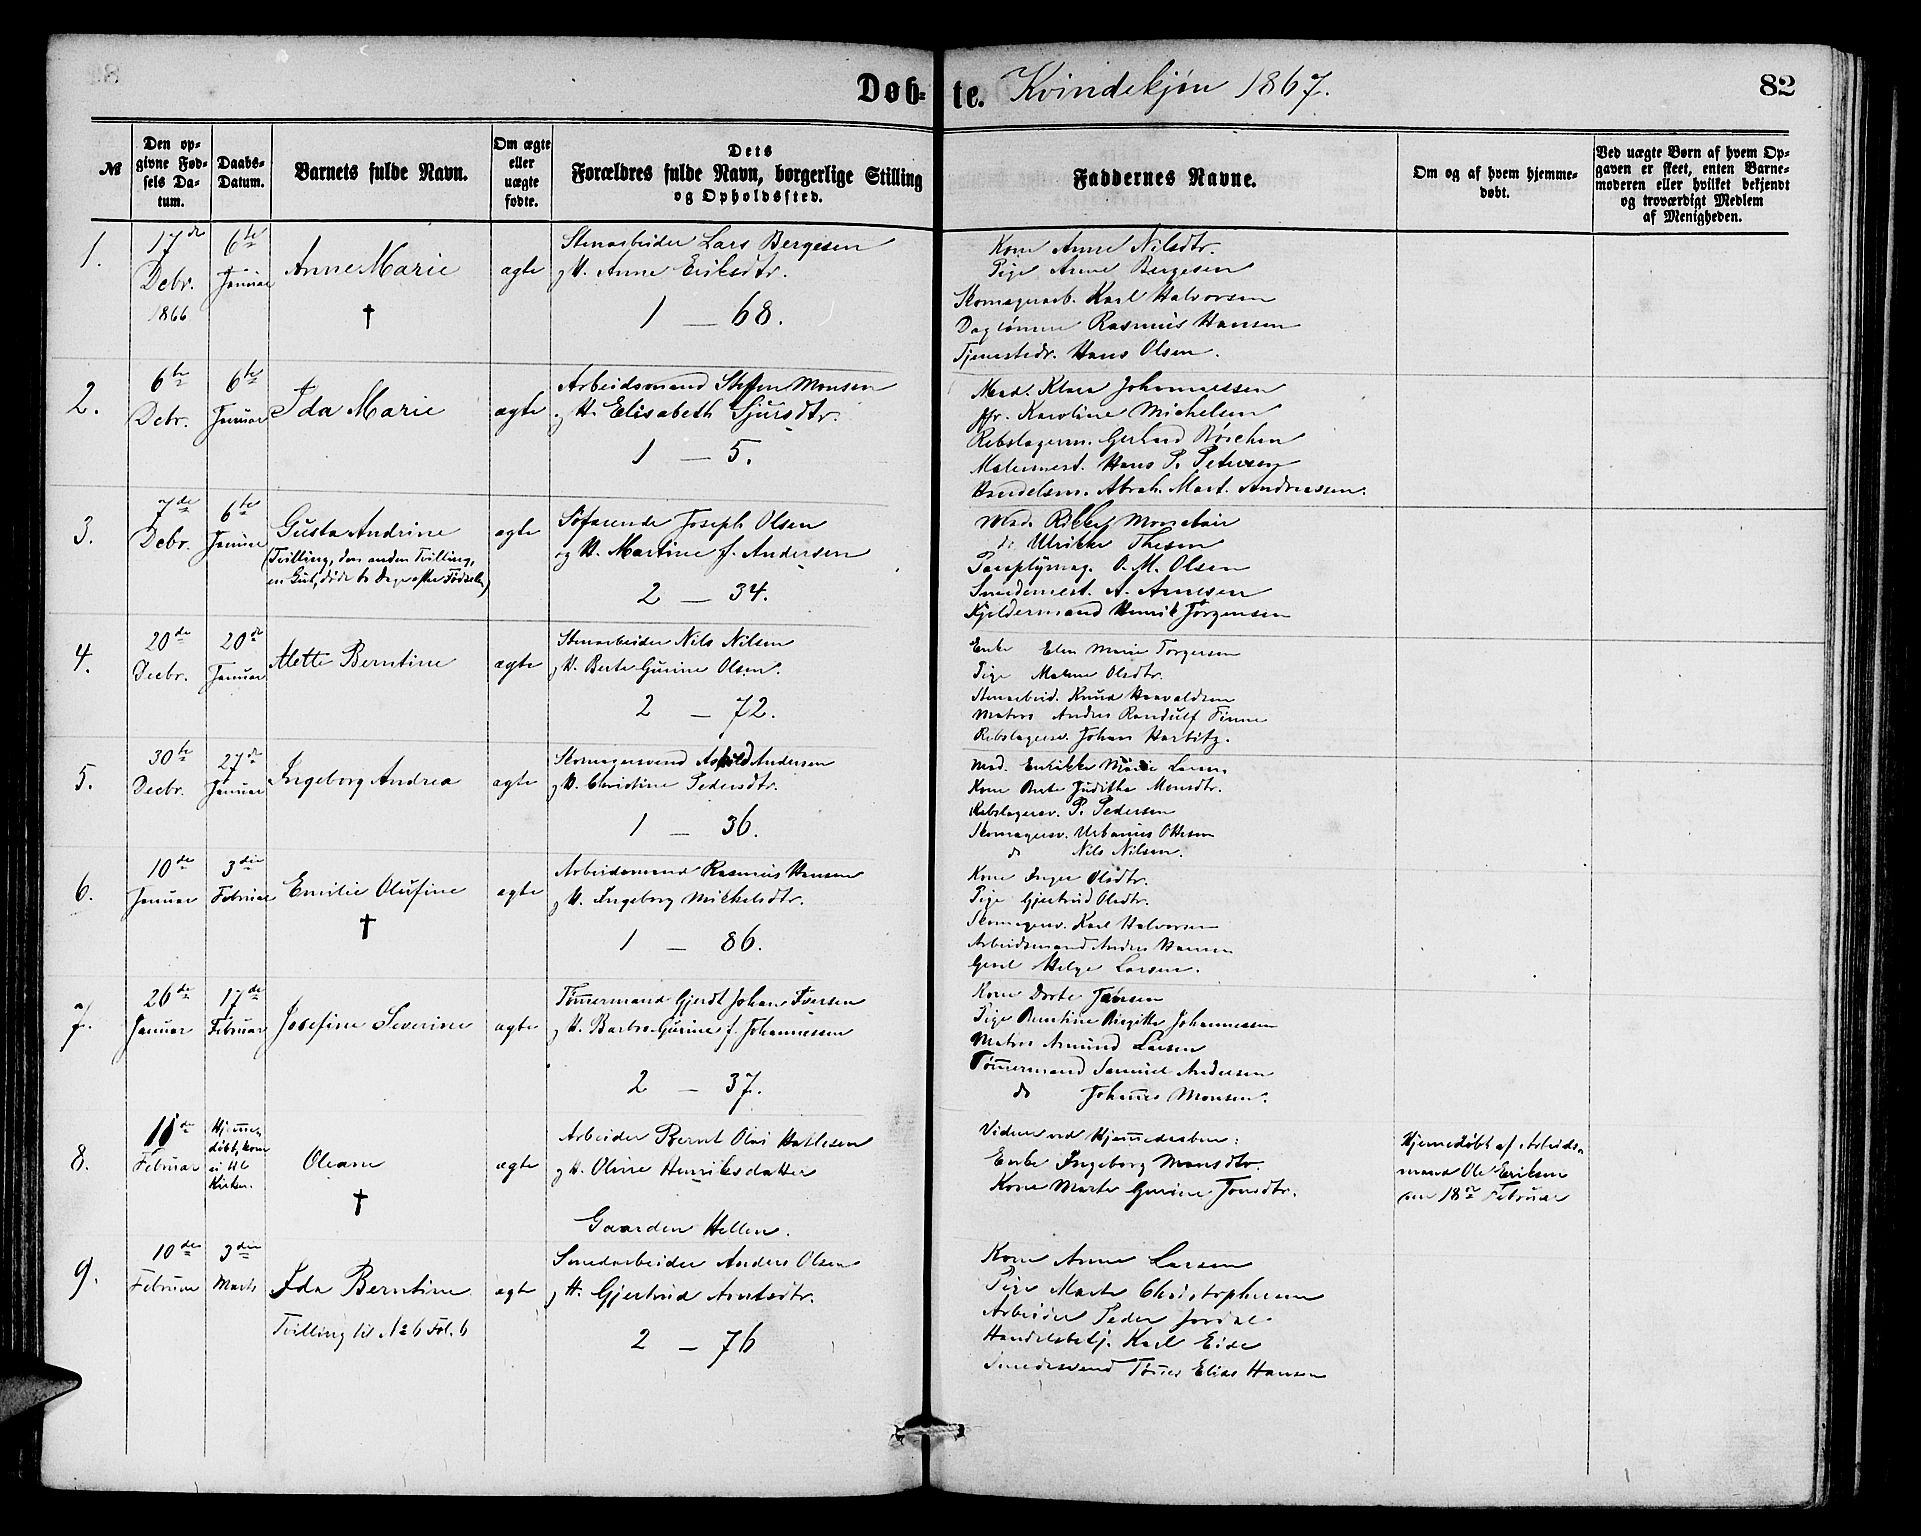 Døb-te. Kvindekjøn 1867.
82
№
Den op-
givne Fød-
sels Da-
tum.
Daabs-
Datum.
Barnets fulde Navn.
Om ægte
eller
uægte
fødte.
Dets
Forældres fulde Navn, borgerlige Stilling
og Opholdssted.
Faddernes Navne.
Om og af hvem hjemme-
døbt.
Ved uægte Børn af hvem Op-
gaven er skeet, enten Barne-
moderen eller hvilket bekjendt
og troværdigt Medlem
af Menigheden.
1.
17de
Debr.
1866
6te
Januar
Anne Marie
†
ægte
Stenarbeider Lars Bergesen
og H. Anne Eriksdtr.
1 – 68.
Kone Anne Nilsdtr.
Pige Anne Bergesen
Skomagerarb. Karl Halvorsen
Daglønner Rasmus Hansen
Tjenestedr. Hans Olsen.
2.
6te
Debr.
6te
Januar
Ida Marie
ægte
Arbeidsmand Steffen Monsen
og H. Elisabeth Sjursdtr.
1 – 5.
Mad. Klara Johannessen
Jfr. Karoline Michelsen
Rebslagerm. Gerhard
Malermest. Hans P. Petersen
Handelsm. Abrah. Mart. Andreassen.
3.
7de
Debr.
6te
Januar
Gusta Andrine
(Tvilling, den anden Tvilling,
en Gut, døde to Dage efter Fødselen)
ægte
Søfarende Joseph Olsen
og H. Martine f. Andersen
2 – 34.
Mad. Rikke
do Ulrikke Thesen
Paraplymag. O. M. Olsen
Smedemest. A. Arnesen
Kjeldermand Henrik Jørgensen
4.
20de
Decbr.
20de
Januar
Mette Berntine
ægte
Stenarbeider Nils Nilsen
og H. Berte Gurine Olsen.
2 – 72.
Enke Elen Marie Torgersen
Pige Malene Olsdtr.
Stenarbeid. Knud Haavaldsen
Matros Anders Randulf Finne
Rebslagersv. Johan Harbitz.
5.
30te
Decbr.
27de
Januar
Ingeborg Andrea
ægte
Skomagersvend Andersen
og H. Christine Pedersdtr.
1 – 36.
Mad. Enrikke Marie Larsen
Kone Berte Juditha Monsdtr.
Rebslagersv. P. Pedersen
Skomagersv. Urbanus Ottesen
do Nils Nilsen.
6.
10de
Januar
3die
Februar
Emilie Olufine
†
ægte
Arbeidsmand Rasmus Hansen
og H. Ingeborg Mikkelsdtr.
1 – 86.
Kone Inger Olsdtr.
Pige Gjertrud Olsdtr.
Skomagersv. Karl Halvorsen
Arbeidsmand Anders Hansen
Helge Larsen.
7.
26de
Januar
17de
Februar
Josefine Severine
ægte
Tømmermand Gjerdt Johan Iversen
og H. Barbro Gurine f. Johannessen
2 – 37.
Kone Dorte Jansen
Pige Berntine Birgitte Johannessen
Matros Amund Larsen
Tømmermand Samuel Andersen
do Johannes Monsen.
8.
11de
Februar
Hjemme-
døbt, kom
ei til
Kirken.
Oleane
†
ægte
Arbeider Bernt Olai Hatlesen
og H. Oline Henriksdatter
Gaarden Hellen.
Vidner ved Hjemmedaaben:
Enke Ingeborg Monsdtr.
Kone Marte Gurine Jonsdtr.
Hjemmedøbt af Arbeids-
mand Ole Eriksen
den 18de Februar
9.
10de
Februar
3die
Marts
Ida Berntine
Tvilling til No 6 Fol. 6
ægte
Smedarbeider Anders Olsen
og H. Gjertrud Arntsdtr.
2 – 76
Kone Anne Larsen
Pige Marte Christophersen
Arbeider Peder Jordal
Handelsbetj. Karl Eide
Smedesvend Tønnes Elias Hansen